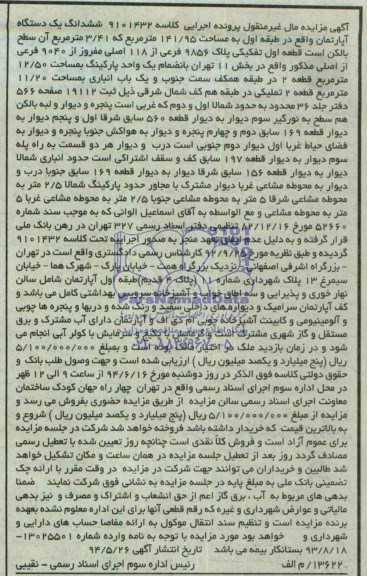 آگهی مزایده مال غیرمنقول پرونده اجرایی کلاسه ۹۱۰۱۴۳۲ ششدانگ یک دستگاه
آپارتمان واقع در طبقه اول به مساحت ۱۴۱/۹۵ مترمربع که ۳/۴۱ مترمربع آن سطح
بالکن است قطعه اول تفکیکی پلاک ۹۸۵۶ فرعی از ۱۱۸ اصلی مفروز از ۴۰۹۰ فرعی
از اصلی مذکور واقع در بخش ۱۱ تهران بانضمام یک واحد پارکینگ بمساحت ۱۲/۵۰
مترمربع قطعه ۲ در طبقه همکف سمت جنوب و یک باب انباری بمساحت ۱۱/۲۰
مترمربع قطعه ۲ تملیکی در طبقه هم کف شمال شرقی ذیل ثبت ۱۹۱۱۲ صفحه ۵۶۶
دفتر جلد ۳۶ محدود به حدود شمالا اول و دوم که غربی است پنجره و دیوار و لبه بالکن
هم سطح به نورگیر سوم دیوار به دیوار قطعه ۵۶۰ سابق شرقا اول و پنجم دیوار به
دیوار قطعه ۱۶۹ سابق دوم و چهارم پنجره و دیوار به هواکش جنوبا پنجره و دیوار به
فضای حیاط غربا اول دیوار دوم جنوبی است درب و دیوار هر دو قسمت به راه پله
سوم دیوار به دیوار قطعه ۱۹۷ سابق کف و سقف اشتراکی است حدود انباری شمالا
دیوار به دیوار قطعه ۱۵۶ سابق شرقا دیوار به دیوار قطعه ۱۶۹ سابق جنوبا درب و
دیوار به محوطه مشاعی غربا دیوار مشترک با مجاور حدود پارکینگ شمالا ۲/۵ متر به
محوطه مشاعی شرقا ۵ متر به محوطه مشاعی جنوبا ۲/۵ متر به محوطه مشاعی غربا ۵
متر به محوطه مشاعی و مع الواسطه به آقای اسماعیل الوانی که به موجب سند شماره
۵۲۶۶۰ مورخ ۸۲/۱۲/۱۶ تنظیمی دفتر اسناد رسمی ۳۲۷ تهران در رهن بانک ملی
قرار گرفته و به دلیل عدم ایفای تعهد منجر به صدور اجرائیه تحت کلاسه ۹۱۰۱۴۳۲
گردیده و طبق نظریه مورخ ۹۲/۹/۲۵ کارشناس رسمی دادگستری واقع است در تهران
- بزرگراه اشرفی اصفهانی - نزدیک بزرگراه همت - خیابان پارک - شهرک هما - خیابان
سیمرغ ۱۳ پلاک شهرداری شماره طبقه اول آپارتمان شامل سالن
نهار خوری و پذیرایی و سه اطاق خواب و آشپزخانه سرویس بهداشتی کامل می باشد و
کف آپارتمان سرامیک و دیوارهای داخلی سفید و رنگ شده و دربها و پنجره ها چوبی
و آلومینیومی و کابینت آشپزخانه چوبی ام دی اف و آپارتمان دارای آب مشترک و برق
مستقل و گاز شهری مشترک است و گرمایش پکیج و سرمایش با کولر آبی انجام می
شود و در زمان بازدید ملک در اختیار مالک بوده است و بمبلغ ۵/۱۰۰/۰۰۰/۰۰۰
ریال (پنج میلیارد و یکصد میلیون ریال) ارزیابی شده است و جهت وصول طلب بانک و
حقوق دولتی کلاسه فوق الذکر در روز دوشنبه مورخ ۹۴/۶/۱۶ از ساعت ۹ الی ۱۲ ظهر
در محل اداره سوم اجرای اسناد رسمی واقع در تهران چهار راه جهان کودک ساختمان
معاونت اجرای اسناد رسمی سالن مزایده از طریق مزایده حضوری بفروش می رسد و
مزایده از مبلغ ۵/۱۰۰/۰۰۰/۰۰۰ ریال (پنج میلیارد و یکصد میلیون ریال) شروع و
به بالاترین قیمت که خریدار داشته باشد فروخته خواهد شد شرکت در جلسه مزایده
برای عموم آزاد است و فروش کلاً نقدی است چنانچه روز تعیین شده با تعطیل رسمی
مصادف گردد روز بعد از تعطیل جلسه مزایده در همان ساعت و مکان تشکیل خواهد
شد طالبین و خریداران می توانند جهت شرکت در مزایده در وقت مقرر با ارائه چک
تضمینی بانک ملی به مبلغ پایه در جلسه مزایده به نشانی فوق شرکت نمایند ضمنا
بدهی های مربوط به آب ، برق گاز اعم از حق انشعاب و اشتراک و مصرف و نیز بدهی
مالیاتی و عوارض شهرداری و غیره که رقم قطعی آنها برای این اداره معلوم نشده بعهده
برنده مزایده است و تنظیم سند انتقال موکول به ارائه مفاصا حساب های دارایی و
شهرداری و خواهد بود مورد مزایده با توجه به نامه وارده شماره ۱۳۰۲۵۵۰۱-
۹۳/۸/۱۸ بستانکار بیمه می باشد تاریخ انتشار آگهی ۹۴/۵/۲۶
۱۳۶۲۲۰/ م الف رئیس اداره سوم اجرای اسناد رسمی - نقیبی